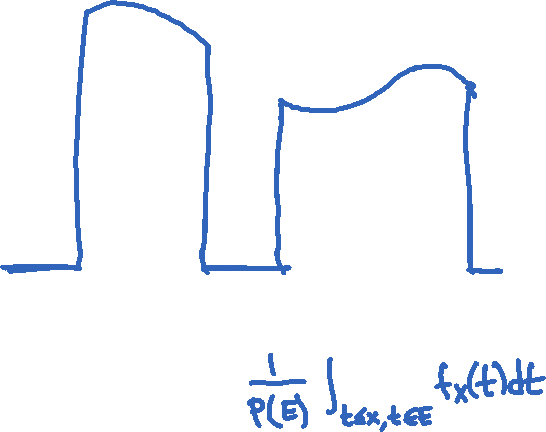 1/P(E) ∫_{t≤x, t∈E} f_X(t)dt